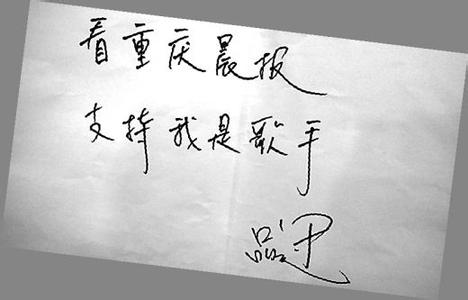 看重庆晨报
支持我是歌手